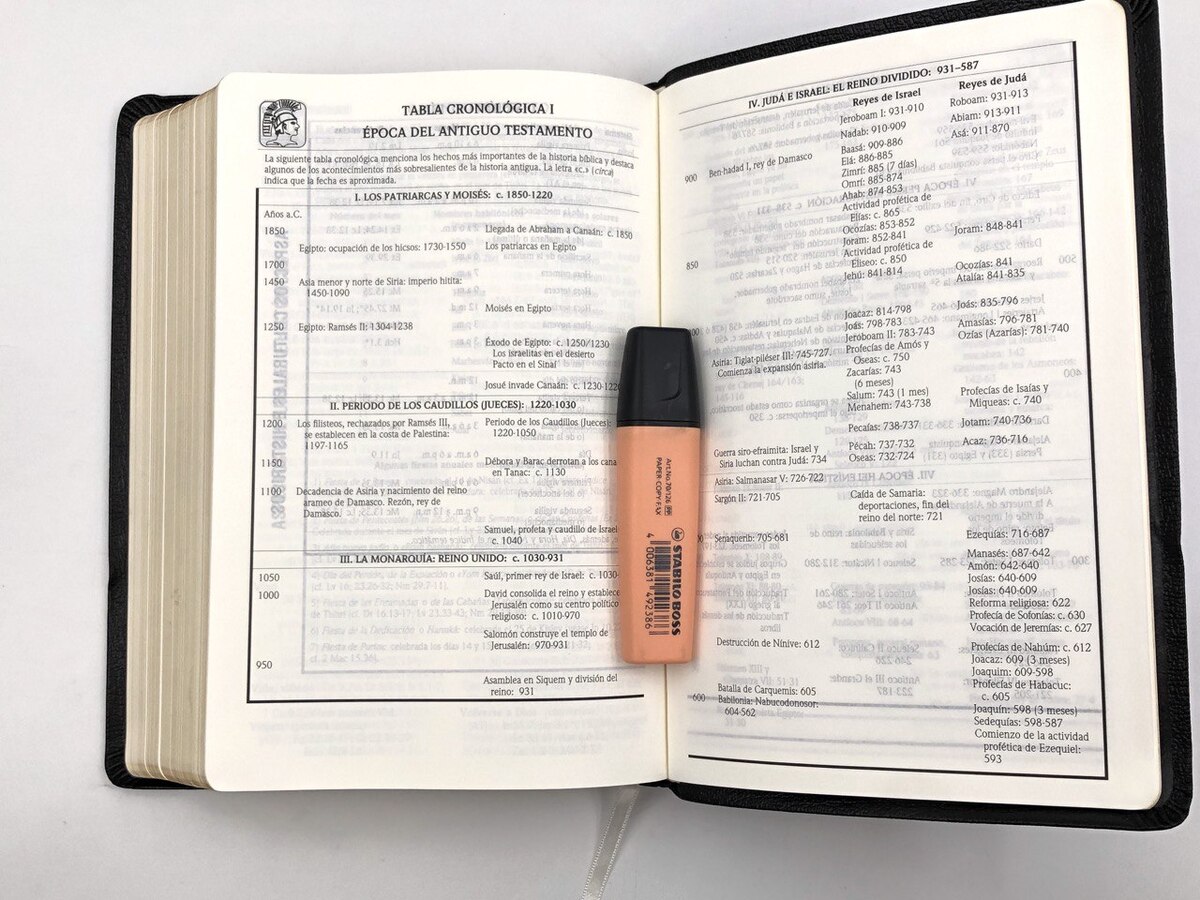 TABLA CRONOLÓGICA I
ÉPOCA DEL ANTIGUO TESTAMENTO
La siguiente tabla cronológica menciona los hechos más importantes de la historia bíblica y destaca
algunos de los acontecimientos más sobresalientes de la historia antigua. La letra «c.» (circa)
indica que la fecha es aproximada.
I. LOS PATRIARCAS Y MOISÉS: c. 1850-1220
Años a.C.
1850
Llegada de Abraham a Canaán: c. 1850
Egipto: ocupación de los hicsos: 1730-1550
Los patriarcas en Egipto
1700
1450
Asia menor y norte de Siria: imperio hitita:
1450-1090
Moisés en Egipto
1250
Egipto: Ramsés II: 1304-1238
Éxodo de Egipto: c. 1250/1230
Los israelitas en el desierto
Pacto en el Sinaí
Josué invade Canaán: c. 1230-1220
II. PERIODO DE LOS CAUDILLOS (JUECES): 1220-1030
1200
Los filisteos, rechazados por Ramsés III,
se establecen en la costa de Palestina:
1197-1165
Periodo de los Caudillos (Jueces):
1220-1050
1150
Débora y Barac derrotan a los cana
en Tanac: c. 1130
1100
Decadencia de Asiria y nacimiento del reino
arameo de Damasco. Rezón, rey de
Damasco.
Samuel, profeta y caudillo de Israel
c. 1040
III. LA MONARQUÍA: REINO UNIDO: c. 1030-931
1050
Saúl, primer rey de Israel: c. 1030-
1000
David consolida el reino y establece
Jerusalén como su centro político
religioso: c. 1010-970
Salomón construye el templo de
Jerusalén: 970-931
950
Asamblea en Siquem y división del
reino: 931
STABILO BOSS
Art.No. 70/126
PAPER-COPY-FAX
4 006381 492386
IV. JUDÁ E ISRAEL: EL REINO DIVIDIDO: 931–587
Reyes de Israel
Reyes de Judá
Jeroboam I: 931-910
Roboam: 931-913
Abiam: 913-911
Nadab: 910-909
Asá: 911-870
Baasá: 909-886
900
Ben-hadad I, rey de Damasco
Elá: 886-885
Zimrí: 885 (7 días)
Omrí: 885-874
Ahab: 874-853
Actividad profética de
Elías: c. 865
Ocozías: 853-852
Joram: 852-841
Joram: 848-841
Actividad profética de
Eliseo: c. 850
850
Jehú: 841-814
Ocozías: 841
Atalía: 841-835
Joacaz: 814-798
Joás: 835-796
Joás: 798-783
Amasías: 796-781
Jeroboam II: 783-743
Ozías (Azarías): 781-740
Asiria: Tiglat-piléser III: 745-727.
Comienza la expansión asiria.
Profecías de Amós y
Oseas: c. 750
Zacarías: 743
(6 meses)
Salum: 743 (1 mes)
Profecías de Isaías y
Miqueas: c. 740
Menahem: 743-738
Pecaías: 738-737
Jotam: 740-736
Guerra siro-efraimita: Israel y
Siria luchan contra Judá: 734
Pécah: 737-732
Acaz: 736-716
Oseas: 732-724
Asiria: Salmanasar V: 726-722
Sargón II: 721-705
Caída de Samaria:
deportaciones, fin del
reino del norte: 721
Senaquerib: 705-681
Ezequías: 716-687
Manasés: 687-642
Amón: 642-640
Josías: 640-609
Josías: 640-609
Reforma religiosa: 622
Profecía de Sofonías: c. 630
Vocación de Jeremías: c. 627
Destrucción de Nínive: 612
Profecías de Nahúm: c. 612
Joacaz: 609 (3 meses)
Joaquim: 609-598
Profecías de Habacuc:
c. 605
Batalla de Carquemis: 605
600
Babilonia: Nabucodonosor:
604-562
Joaquín: 598 (3 meses)
Sedequías: 598-587
Comienzo de la actividad
profética de Ezequiel:
593